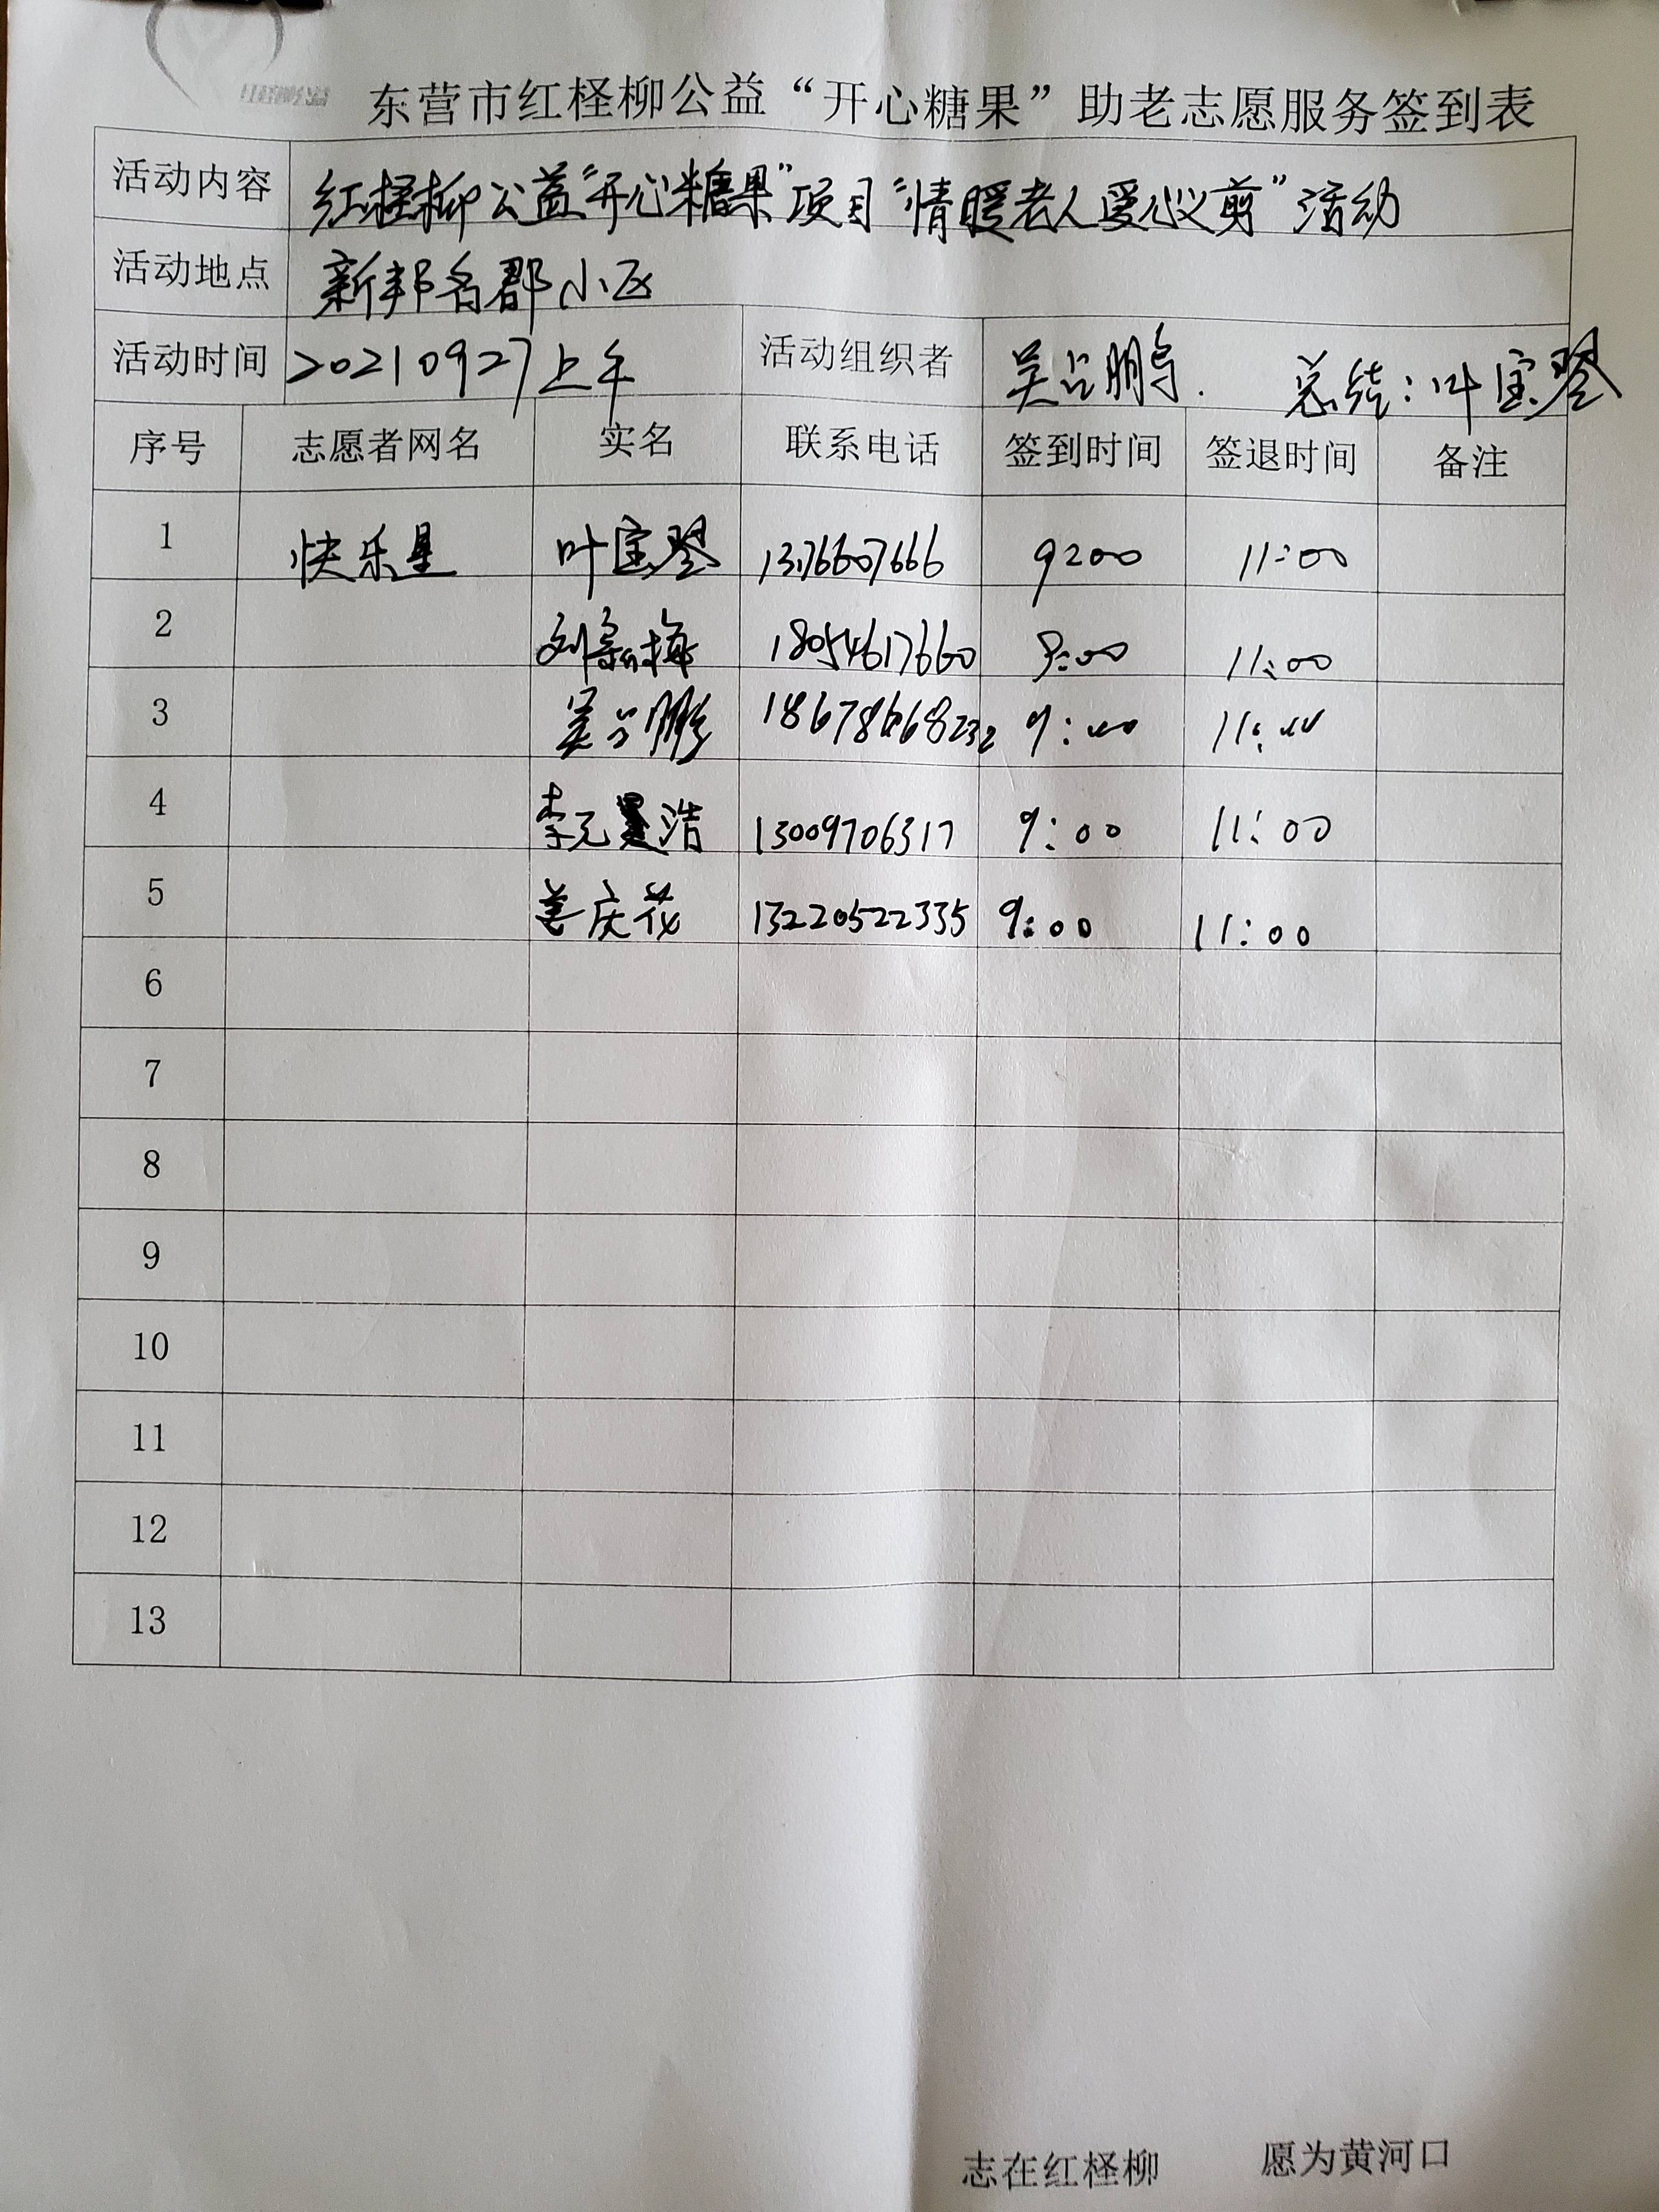 红柽柳公益
东营市红柽柳公益“开心糖果”助老志愿服务签到表
活动内容 红柽柳公益“开心糖果”项目“情暖老人爱心义剪”活动
活动地点 新邦名郡小区
活动时间 20210927上午 活动组织者 吴占鹏. 总结:叶宝琴
序号 志愿者网名 实名 联系电话 签到时间 签退时间 备注
1 快乐星 叶宝琴 13176607666 9:00 11:00
2 刘新梅 18054617660 9:00 11:00
3 吴占鹏 9:00 11:00
4 李元昊浩 13009706317 9:00 11:00
5 姜庆花 13220522335 9:00 11:00
6
7
8
9
10
11
12
13
志在红柽柳 愿为黄河口